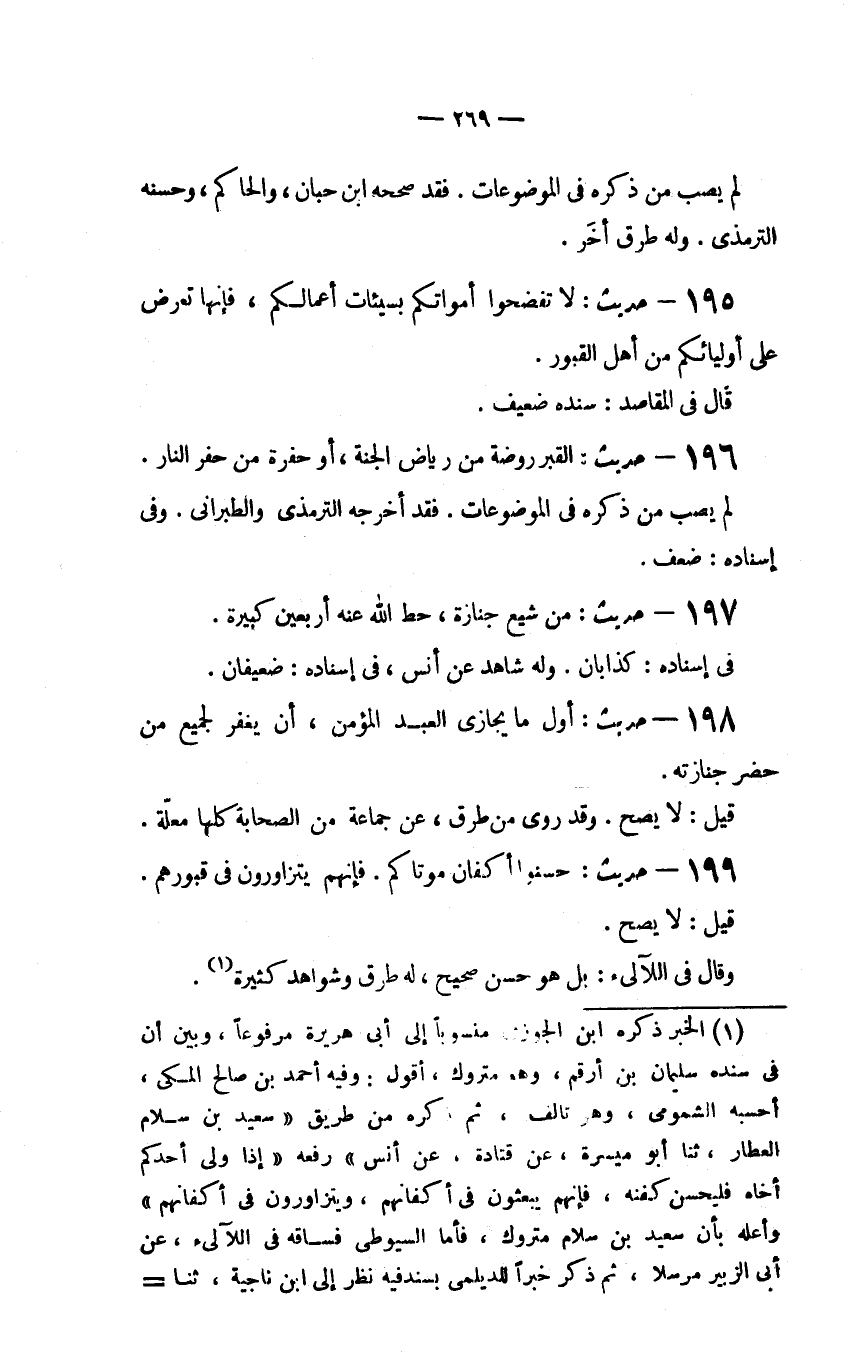 — ٢٦٩ —
لم يصب من ذكره فى الموضوعات . فقد صححه ابن حبان ، والحاكم ، وحسنه
الترمذى . وله طرق أخَر .
١٩٥ – حديث : لا تفضحوا أمواتكم بسيئات أعمالكم ، فإنها تعرض
على أوليائكم من أهل القبور .
قال فى المقاصد : سنده ضعيف .
١٩٦ – حديث : القبر روضة من رياض الجنة ، أو حفرة من حفر النار .
لم يصب من ذكره فى الموضوعات . فقد أخرجه الترمذى والطبرانى . وفى
إسناده : ضعف .
١٩٧ – حديث : من شيع جنازة ، حط الله عنه أربعين كبيرة .
فى إسناده : كذابان . وله شاهد عن أنس ، فى إسناده : ضعيفان .
١٩٨ – حديث : أول ما يجازى العبد المؤمن ، أن يغفر لجميع من
حضر جنازته .
قيل : لا يصح . وقد روى من طرق ، عن جماعة من الصحابة كلها معلّة .
١٩٩ – حديث : حسنوا أكفان موتاكم . فإنهم يتزاورون فى قبورهم .
قيل : لا يصح .
وقال فى اللآلىء : بل هو حسن صحيح ، له طرق وشواهد كثيرة (١) .
(١) الخبر ذكره ابن الجوزى منسوباً إلى أبى هريرة مرفوعاً ، وبين أن
فى سنده سليمان بن أرقم ، وهو متروك ، أقول : وفيه أحمد بن صالح المكى ،
أحسبه الشمومى ، وهو تالف ، ثم ذكره من طريق « سعيد بن سلام
العطار ، ثنا أبو ميسرة ، عن قتادة . عن أنس » رفعه « إذا ولى أحدكم
أخاه فليحسن كفنه ، فإنهم يبعثون فى أكفانهم ، ويتزاورون فى أكفانهم »
وأعله بأن سعيد بن سلام متروك ، فأما السيوطى فساقه فى اللآلىء ، عن
أبى الزبير مرسلا ، ثم ذكر خبراً للديلمى بسندفيه نظر إلى ابن ناجية ، ثنا =